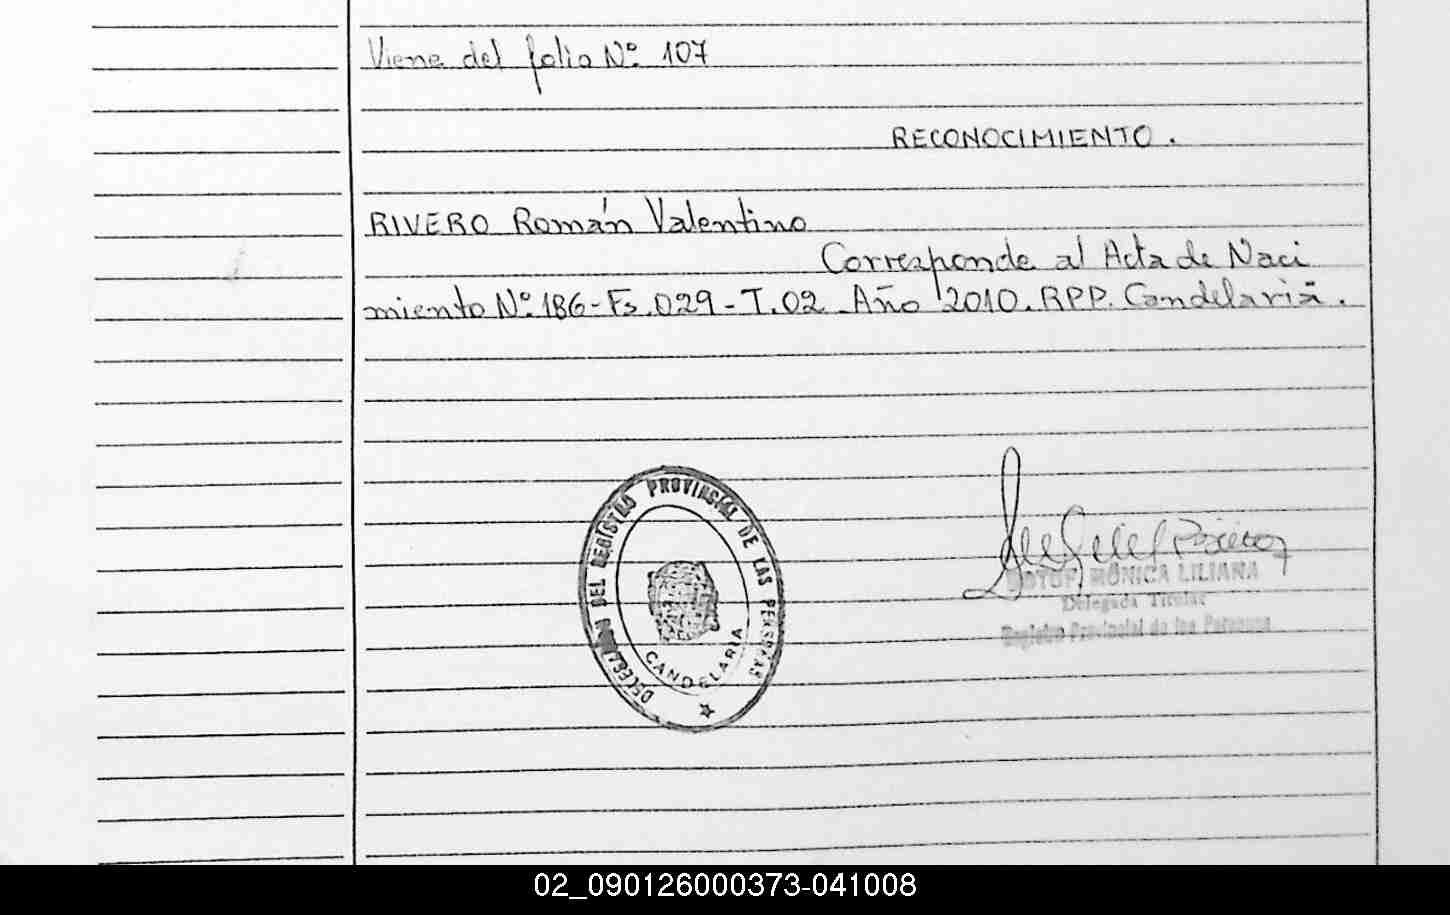 Viene del folio Nº 107
RECONOCIMIENTO.
RIVERO Román Valentino
Corresponde al Acta de Naci
miento Nº 186-Fs.029-T.02 Año 2010. RPP. Candelaria.
DELEGACIÓN DEL REGISTRO PROVINCIAL DE LAS PERSONAS
CANDELARIA
MÓNICA LILIANA
Delegada Titular
Registro Provincial de las Personas
02_090126000373-041008